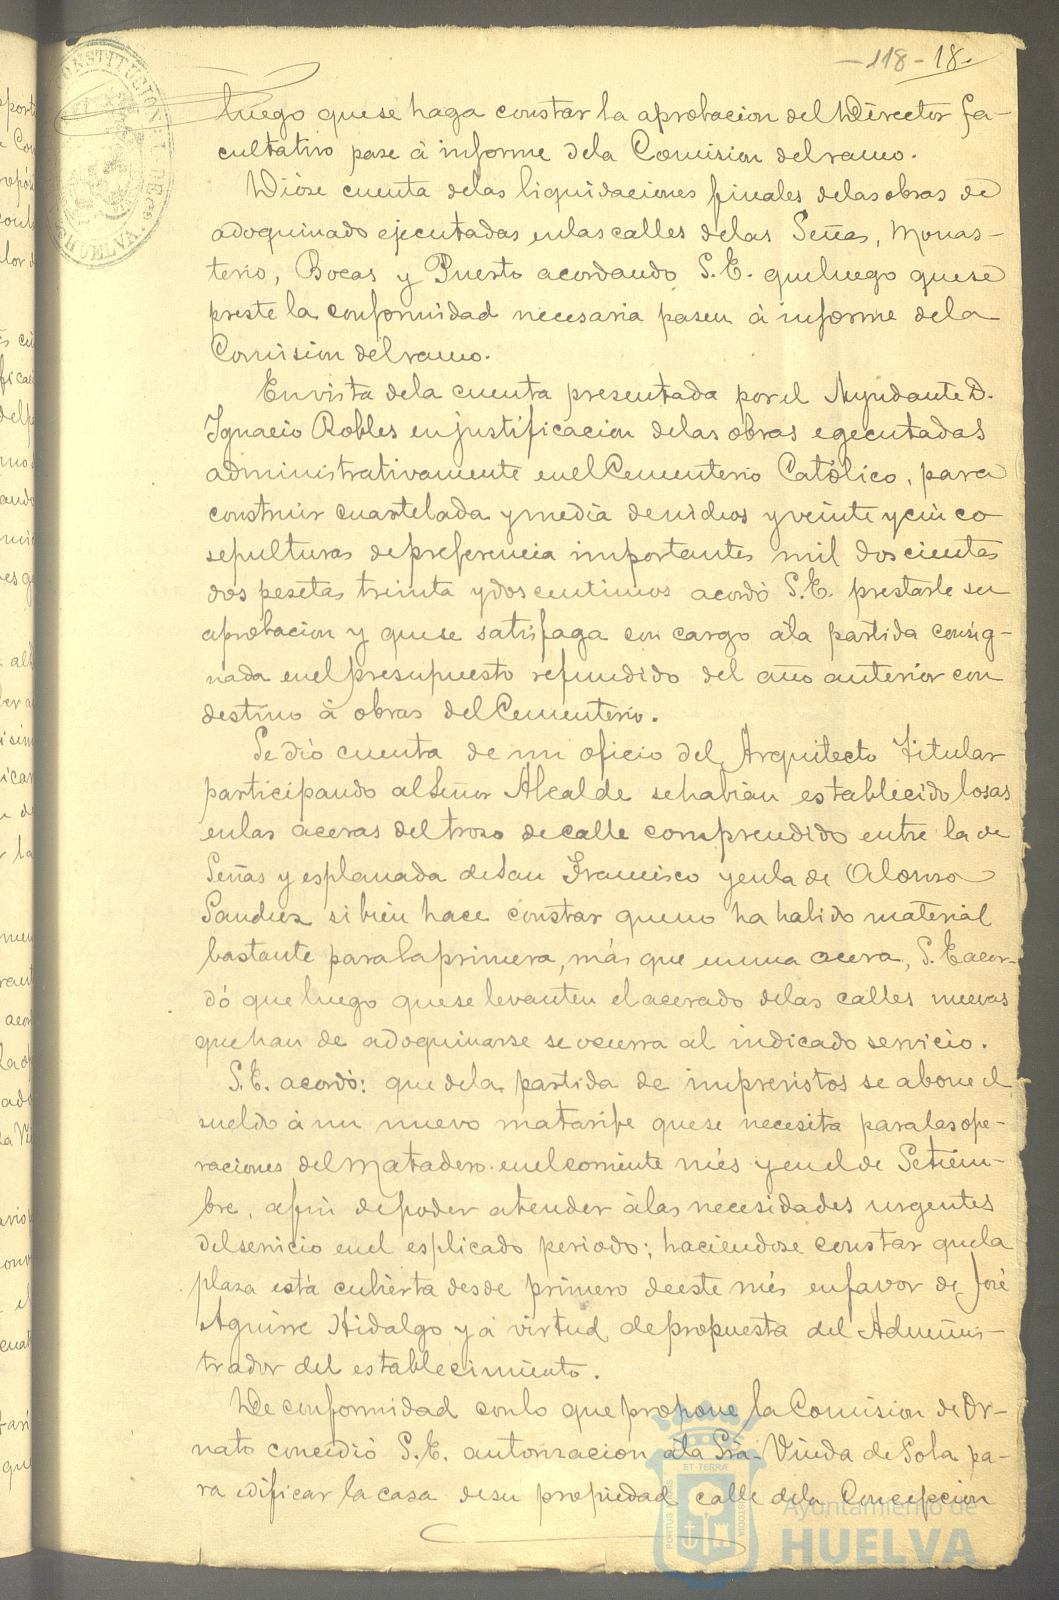 -118- 18.
luego que se haga constar la aprobacion del Director fa-
cultativo pase á informe de la Comision del ramo.
Dióse cuenta de las liquidaciones finales de las obras de
adoquinado ejecutadas en las calles de las Señas, Monas-
terio, Bocas y Puerto acordando S.E. que luego que se
preste la conformidad necesaria pasen á informe de la
Comision del ramo.
En vista de la cuenta presentada por el Ayudante D.
Ignacio Robles en justificacion de las obras egecutadas
administrativamente en el Cementerio Católico, para
construir cuartelada y media de nichos y veinte y cinco
sepulturas de preferencia importantes mil doscientas
dos pesetas treinta y dos centimos acordó S.E. prestarle su
aprobacion y que se satisfaga con cargo á la partida consig-
nada en el presupuesto refundido del año anterior con
destino á obras del Cementerio.
Se dió cuenta de un oficio del Arquitecto Titular
participando al Señor Alcalde se habian establecido losas
en las aceras del trozo de calle comprendido entre la de
Señas y esplanada de San Francisco y en la de Alonso
Sanchez si bien hace constar que no ha habido material
bastante para la primera, más que en una acera, S.E. acor-
dó que luego que se levanten el acerado de las calles nuevas
que han de adoquinarse se ocurra al indicado servicio.
S.E. acordó: que de la partida de imprevistos se abone el
sueldo á un nuevo matarife que se necesita para las ope-
raciones del Matadero en el corriente més y en el de Setiem-
bre, a fin de poder atender á las necesidades urgentes
del servicio en el esplicado periodo; haciendose constar que la
plaza está cubierta desde primero de este més en favor de José
Aguirre Hidalgo y á virtud de propuesta del Adminis-
trador del establecimiento.
De conformidad con lo que propone la Comision de Or-
nato concedió S.E. autorizacion á la Srª Viuda de Sola pa-
ra edificar la casa de su propiedad calle de la Concepcion
CONSTITUCION
HUELVA
PORTUS MARIS ET TERRÆ CUSTODIA
Ayuntamiento de
HUELVA